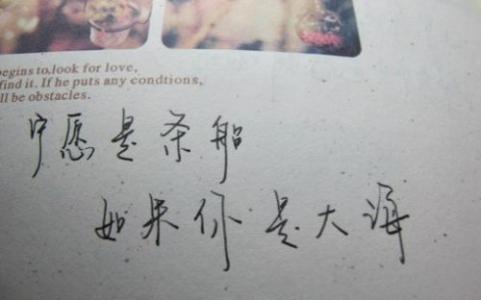 begins to,look for love,
find it. If he puts any condtions,
ll be obstacles.
宁愿是条船
如果你是大海